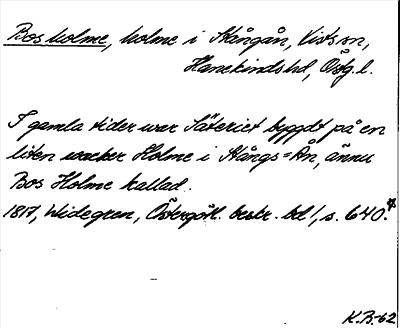 Bos holme, holme i Stångån, Vists sn,
Hanekinds hd, Östg.l.
I gamla tider war Säteriet byggdt på en
liten wacker Holme i Stångs=Ån, ännu
Bos Holme kallad.
1817, Widegren, Östergötl. beskr. bd 1, s. 640.
K.B.-62